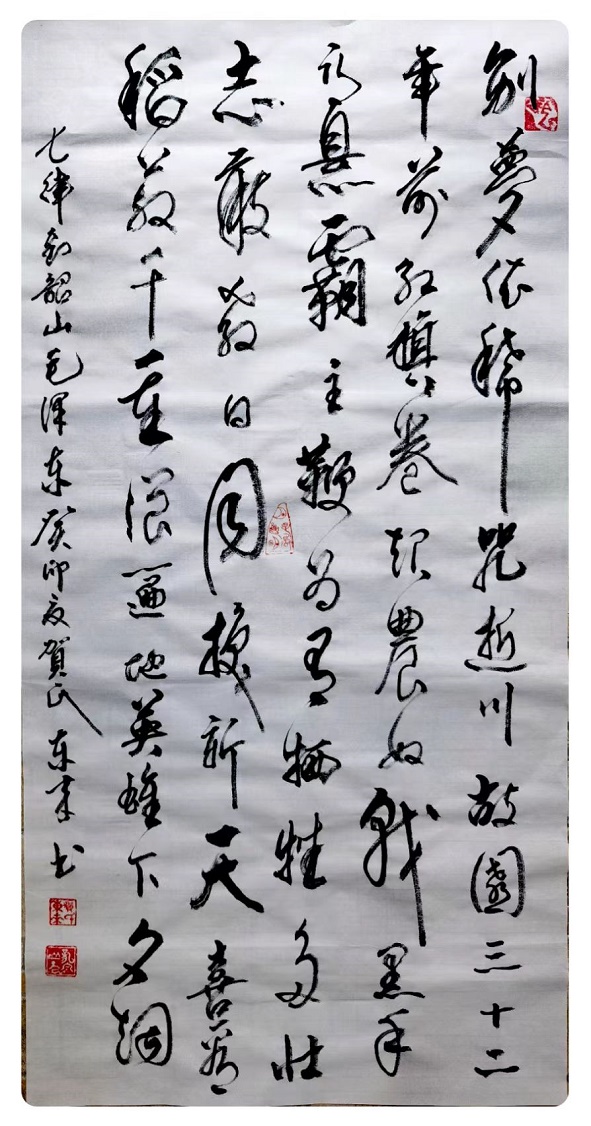 别夢依稀咒逝川故園三十二
年前红旗卷起農奴戟黑手
高悬霸主鞭为有牺牲多壮
志敢教日月换新天喜看
稻菽千重浪遍地英雄下夕烟
七律到韶山毛泽东癸卯夏賀氏东书